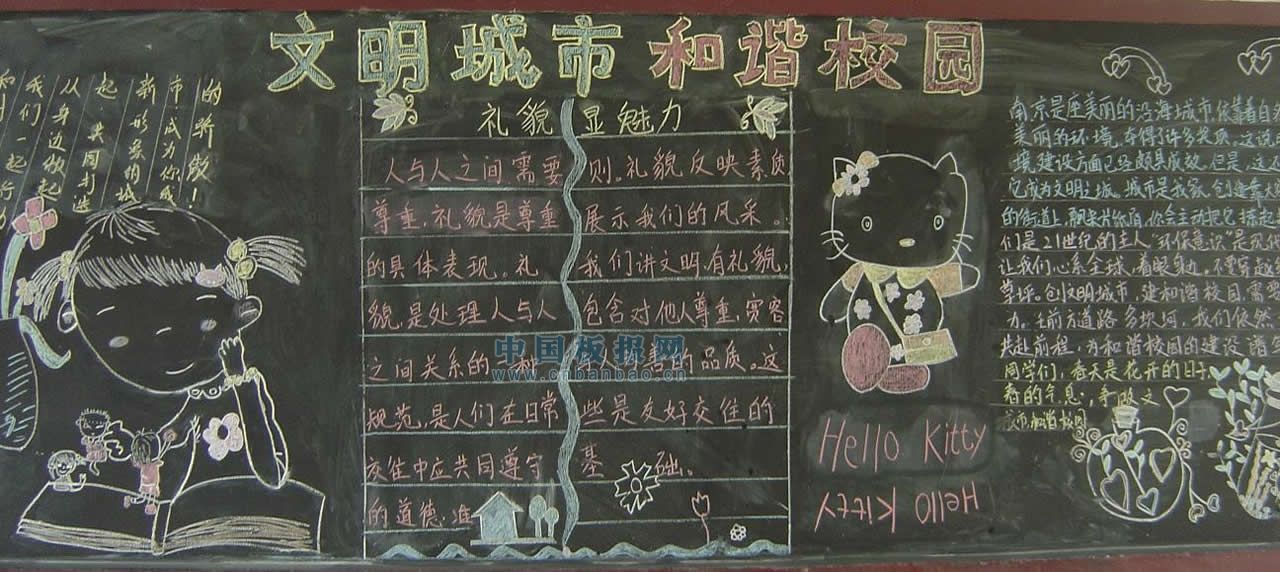 文明城市 和谐校园
的骄傲！
市成为你我
新形象明城
起 共同打造
从身边做起
我们一起
礼貌显魅力
人与人之间需要
尊重,礼貌是尊重
的具体表现。礼
貌,是处理人与人
之间关系的一种
规范,是人们在日常
交往中应共同遵守
的道德.准
则。礼貌反映素质
展示我们的风采。
我们讲文明.有礼貌,
包含对他人尊重.宽容
的品质。这
些是友好交往的
基础。
中国板报网
www.cnbanbao.cn
Hello Kitty
Hello Kitty
南京是座美丽的沿海城市.依靠着自
美丽的环境,夺得了许多奖项。这说
境建设方面已经颇具成效.但是,这
忆成为文明之城,城市是我家,创建靠大
的街道上,飘来片纸屑,你会主动把它拣起
们是21世纪的主人"环保意识"是现代
让我们心系全球,着眼身边,不要穿越
草坪。创文明城市,建和谐校园,需要
力。前方道路多坎坷,我们依然
共赴前程,为和谐校园的建设谱
同学们,春天是花开的日子
春的气息,